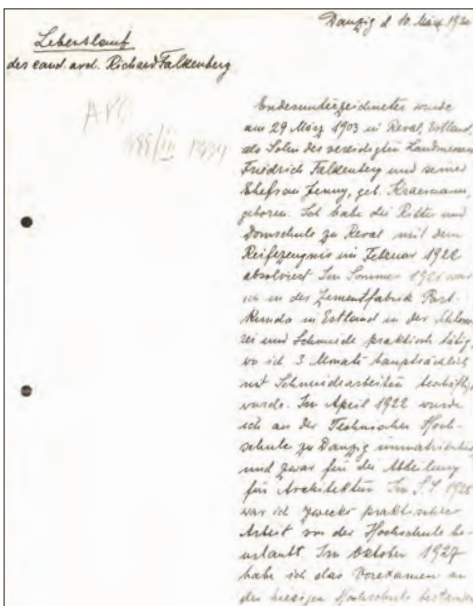 Danzig d 10. März 19
Lebenslauf
des cand. arch. Richard Falkenberg
APG
1884
Endesunterzeichneter wurde
am 29 März 1903 in Reval, Estland
als Sohn des vereidigten Landmessers
Friedrich Falkenberg und seiner
Ehefrau Jenny, geb.
geboren. Ich habe die Ritter und
Domschule zu Reval mit dem
Reifezeugnis im Februar 1922
absolviert Im Sommer 1921 war
ich in der Zementfabrik Port-
Kunda in Estland in der Schlosse
rei und Schmiede praktisch tätig,
wo ich 3 Monate hauptsächlich
mit Schmiedearbeiten beschäftig
wurde. Im April 1922 wurde
ich an der Technischen Hoch-
schule zu Danzig immatrikuliert
und zwar für die Abteilung
für Architektur Im S. S 1925
war ich zwecks praktischer
Arbeit von der Hochschule be-
urlaubt Im Oktober 1927
habe ich das Vorexamen an
der hiesigen Hochschule bestanden